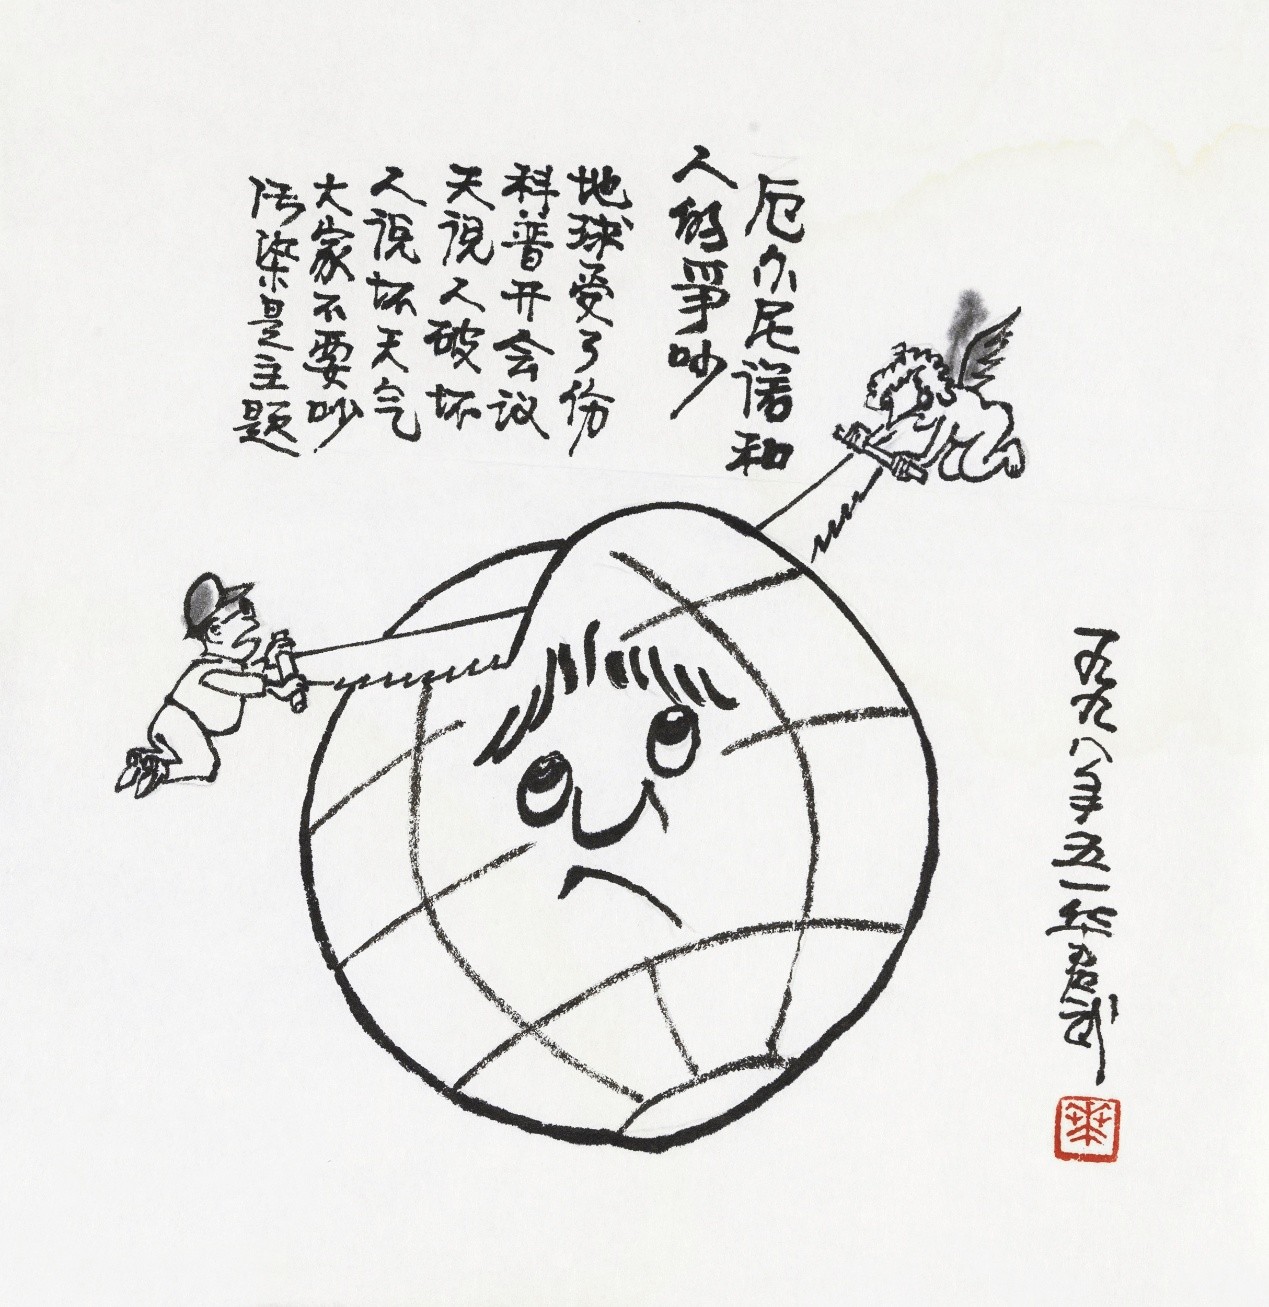 厄尔尼诺和
人的爭吵
地球受了伤
科普开会议
天说人破坏
人说坏天气
大家不要吵
污染是主题
一九九八年五一华君武
華